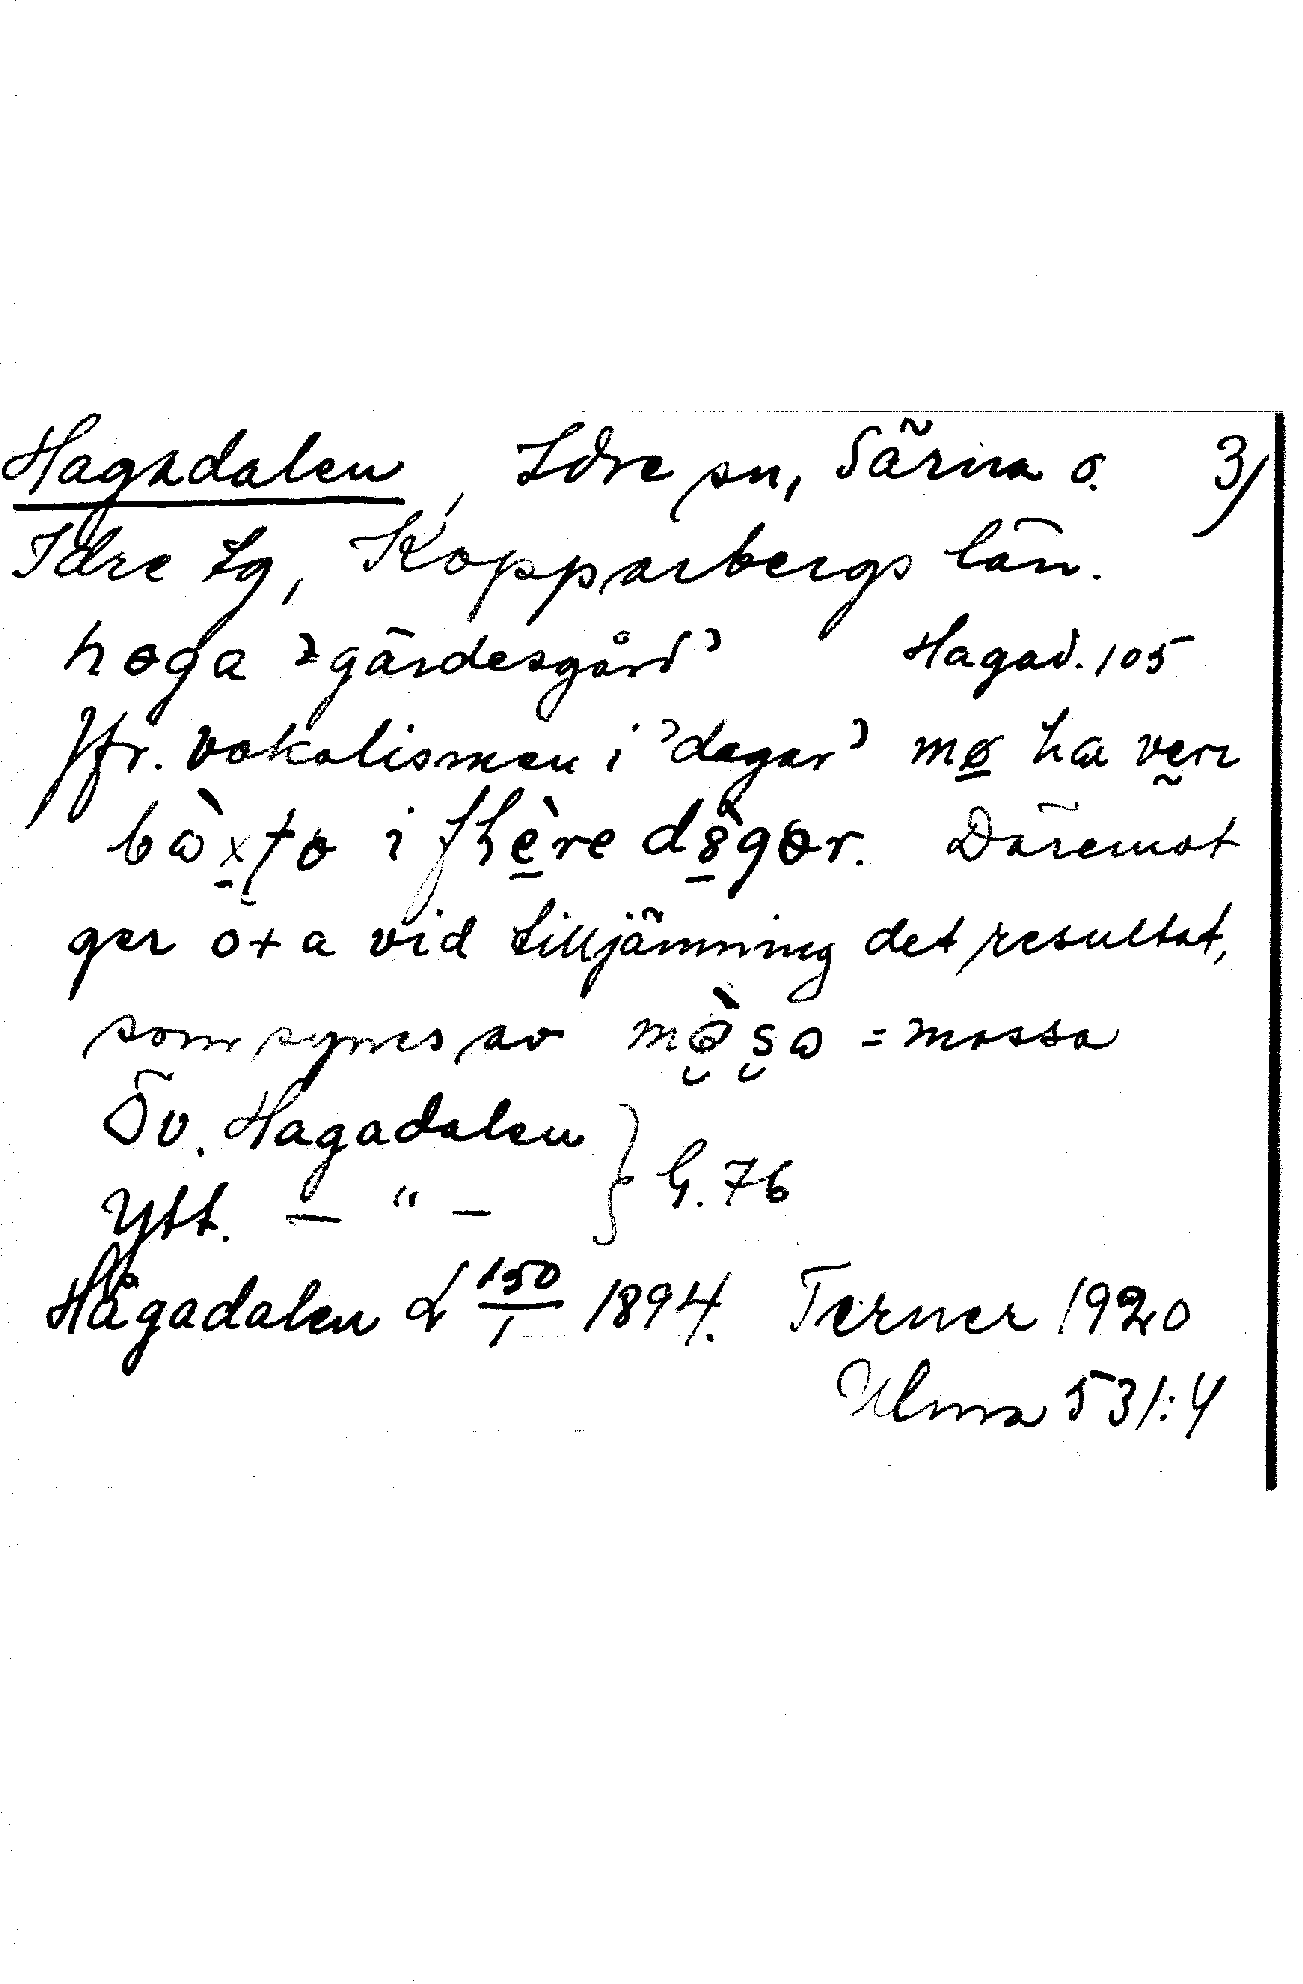 Hagadalen, Idre sn, Särna o. 3/
Idre tg, Kopparbergs län.
høga 'gärdesgård' Hagad. 105
Jfr. vokalismen i 'dagar' mø̱ ha vẹrı
i dagør. Däremot
ger o + a vid tilljämning det resultat,
som synes av = mossa
Öv. Hagadalen
Ytt. — " — } G. 76
Hågadalen L 150/1 1894. Terner 1920
Ulma 531:4